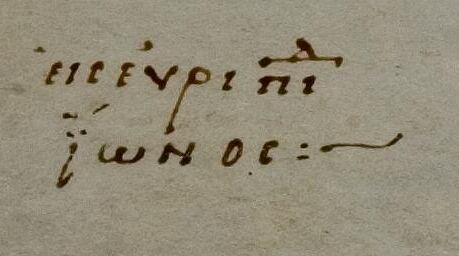 εἰς εὐριπιδ
ἴωνος :~